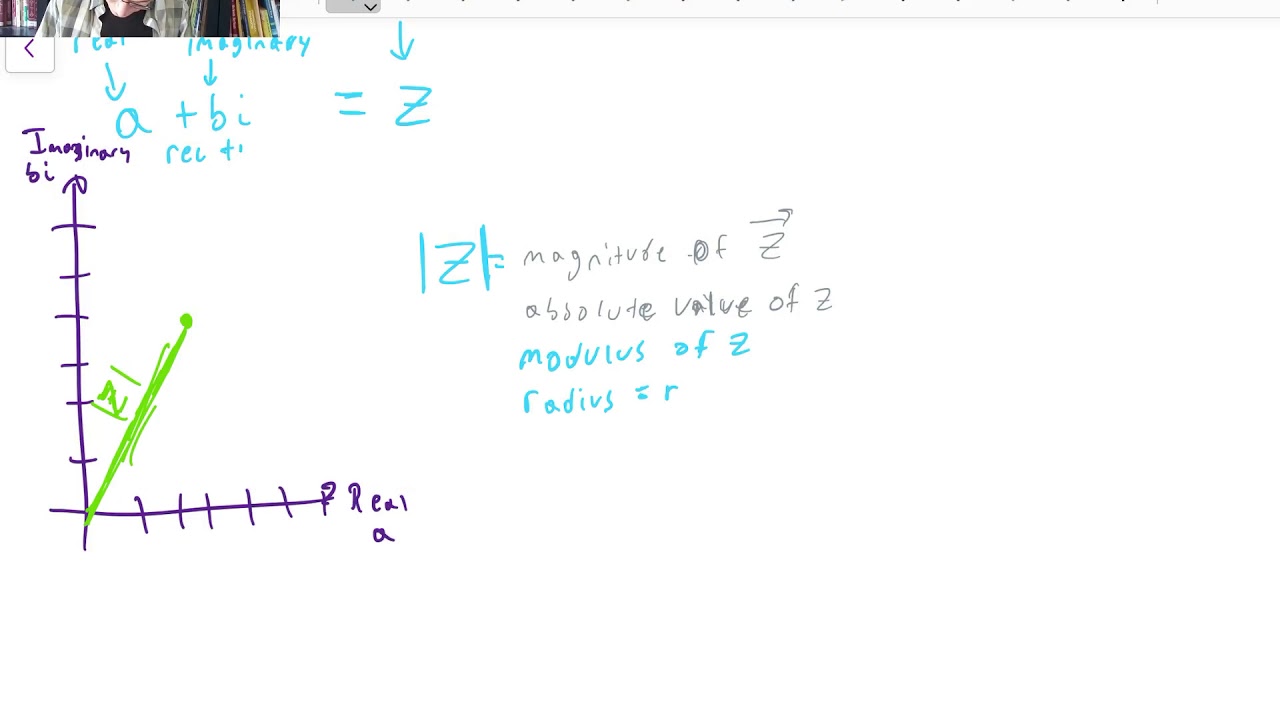 real imaginary
a + bi = z
Imaginary
bi
rec
|z| = magnitude of z
absolute value of z
modulus of z
radius = r
|z|
Real
a